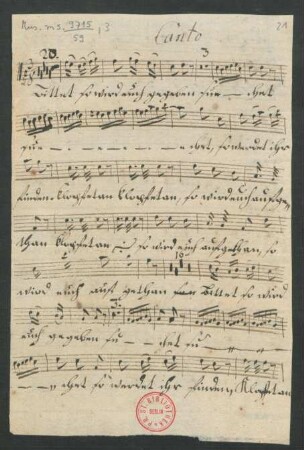 Mus. ms. 9715
59 , 3
Canto
21
20.
3
Bittet so wird euch gegeben su - - chet
su - - - - - chet, so werdet ihr
finden. Klopfet an Klopfet an, so wird euch aufge-
than Klopfet an so wird euch aufgethan, so
10
wird euch auf gethan Bittet so wird
euch gegeben su - - chet su
- - chet so werdet ihr finden, Klopfet an
BERLIN